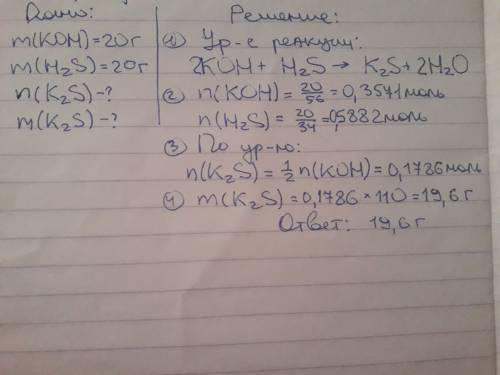 Дано:
m(KOH)=20г
m(H₂S)=20г
n(K₂S)-?
m(K₂S)-?
Решение:
① Ур-е реакции:
2KOH + H₂S → K₂S+2H₂O
② n(KOH) = 20/56 = 0,3571моль
n(H₂S) = 20/34 = 0,5882моль
③ По ур-ю:
n(K₂S) = 1/2 n(KOH) = 0,1786моль
④ m(K₂S) = 0,1786 * 110 = 19,6 г
Ответ: 19,6 г